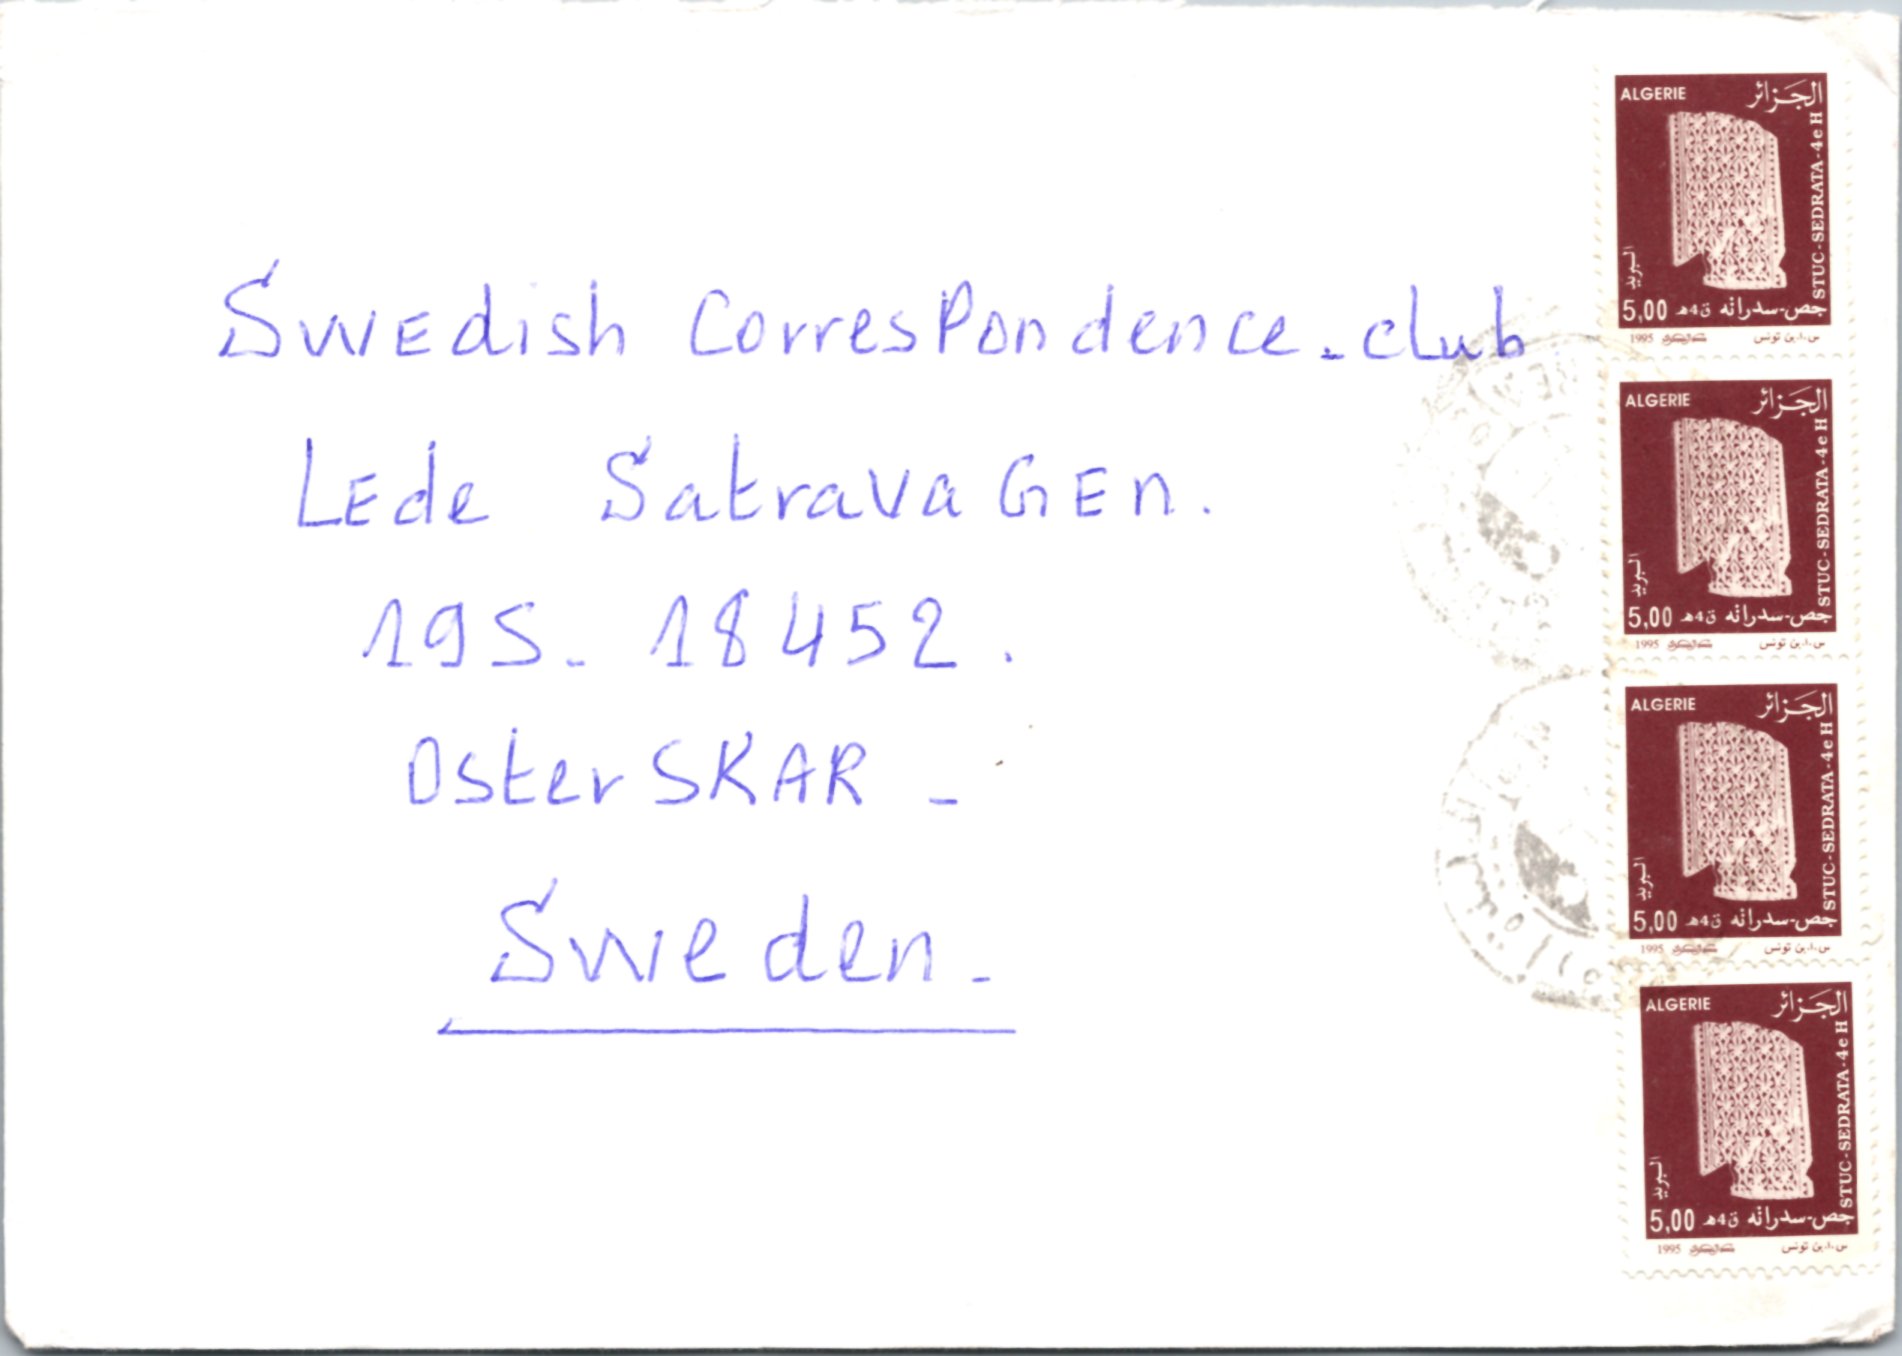 Swedish Correspondence-club
Lede SatravaGen.
195-18452.
OsterSKAR-
Sweden-
ALGERIE الجزائر
STUC-SEDRATA-4e H
البريد
5,00 جص-سدراته ق4هـ
1995
ALGERIE الجزائر
STUC-SEDRATA-4e H
البريد
5,00 جص-سدراته ق4هـ
1995
ALGERIE الجزائر
STUC-SEDRATA-4e H
البريد
5,00 جص-سدراته ق4هـ
1995
ALGERIE الجزائر
STUC-SEDRATA-4e H
البريد
5,00 جص-سدراته ق4هـ
1995